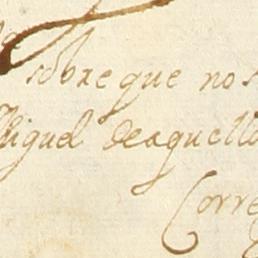 sobre que nos
Miguel de aquello
Corre